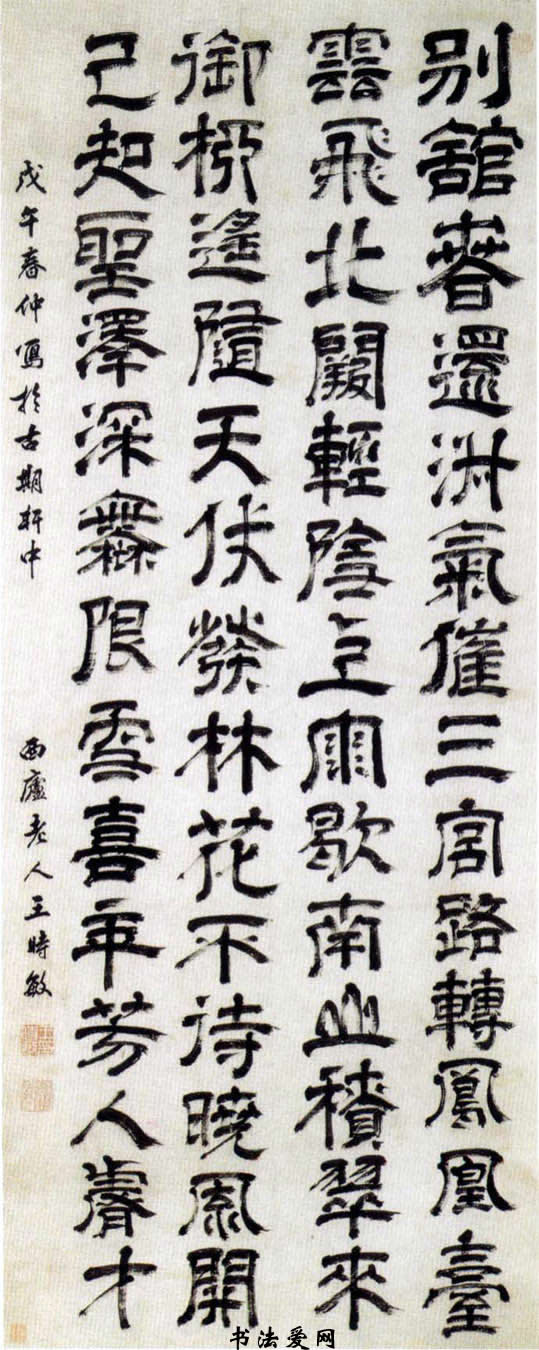 別館春還淑氣催三宮路轉鳳凰臺
雲飛北闕輕陰雨歇南山積翠來
御柳遙隨天仗發林花不待曉風開
已知聖澤深無限喜年芳入睿才
戊午春仲寫於古期軒中 西廬老人王時敏
书法爱网